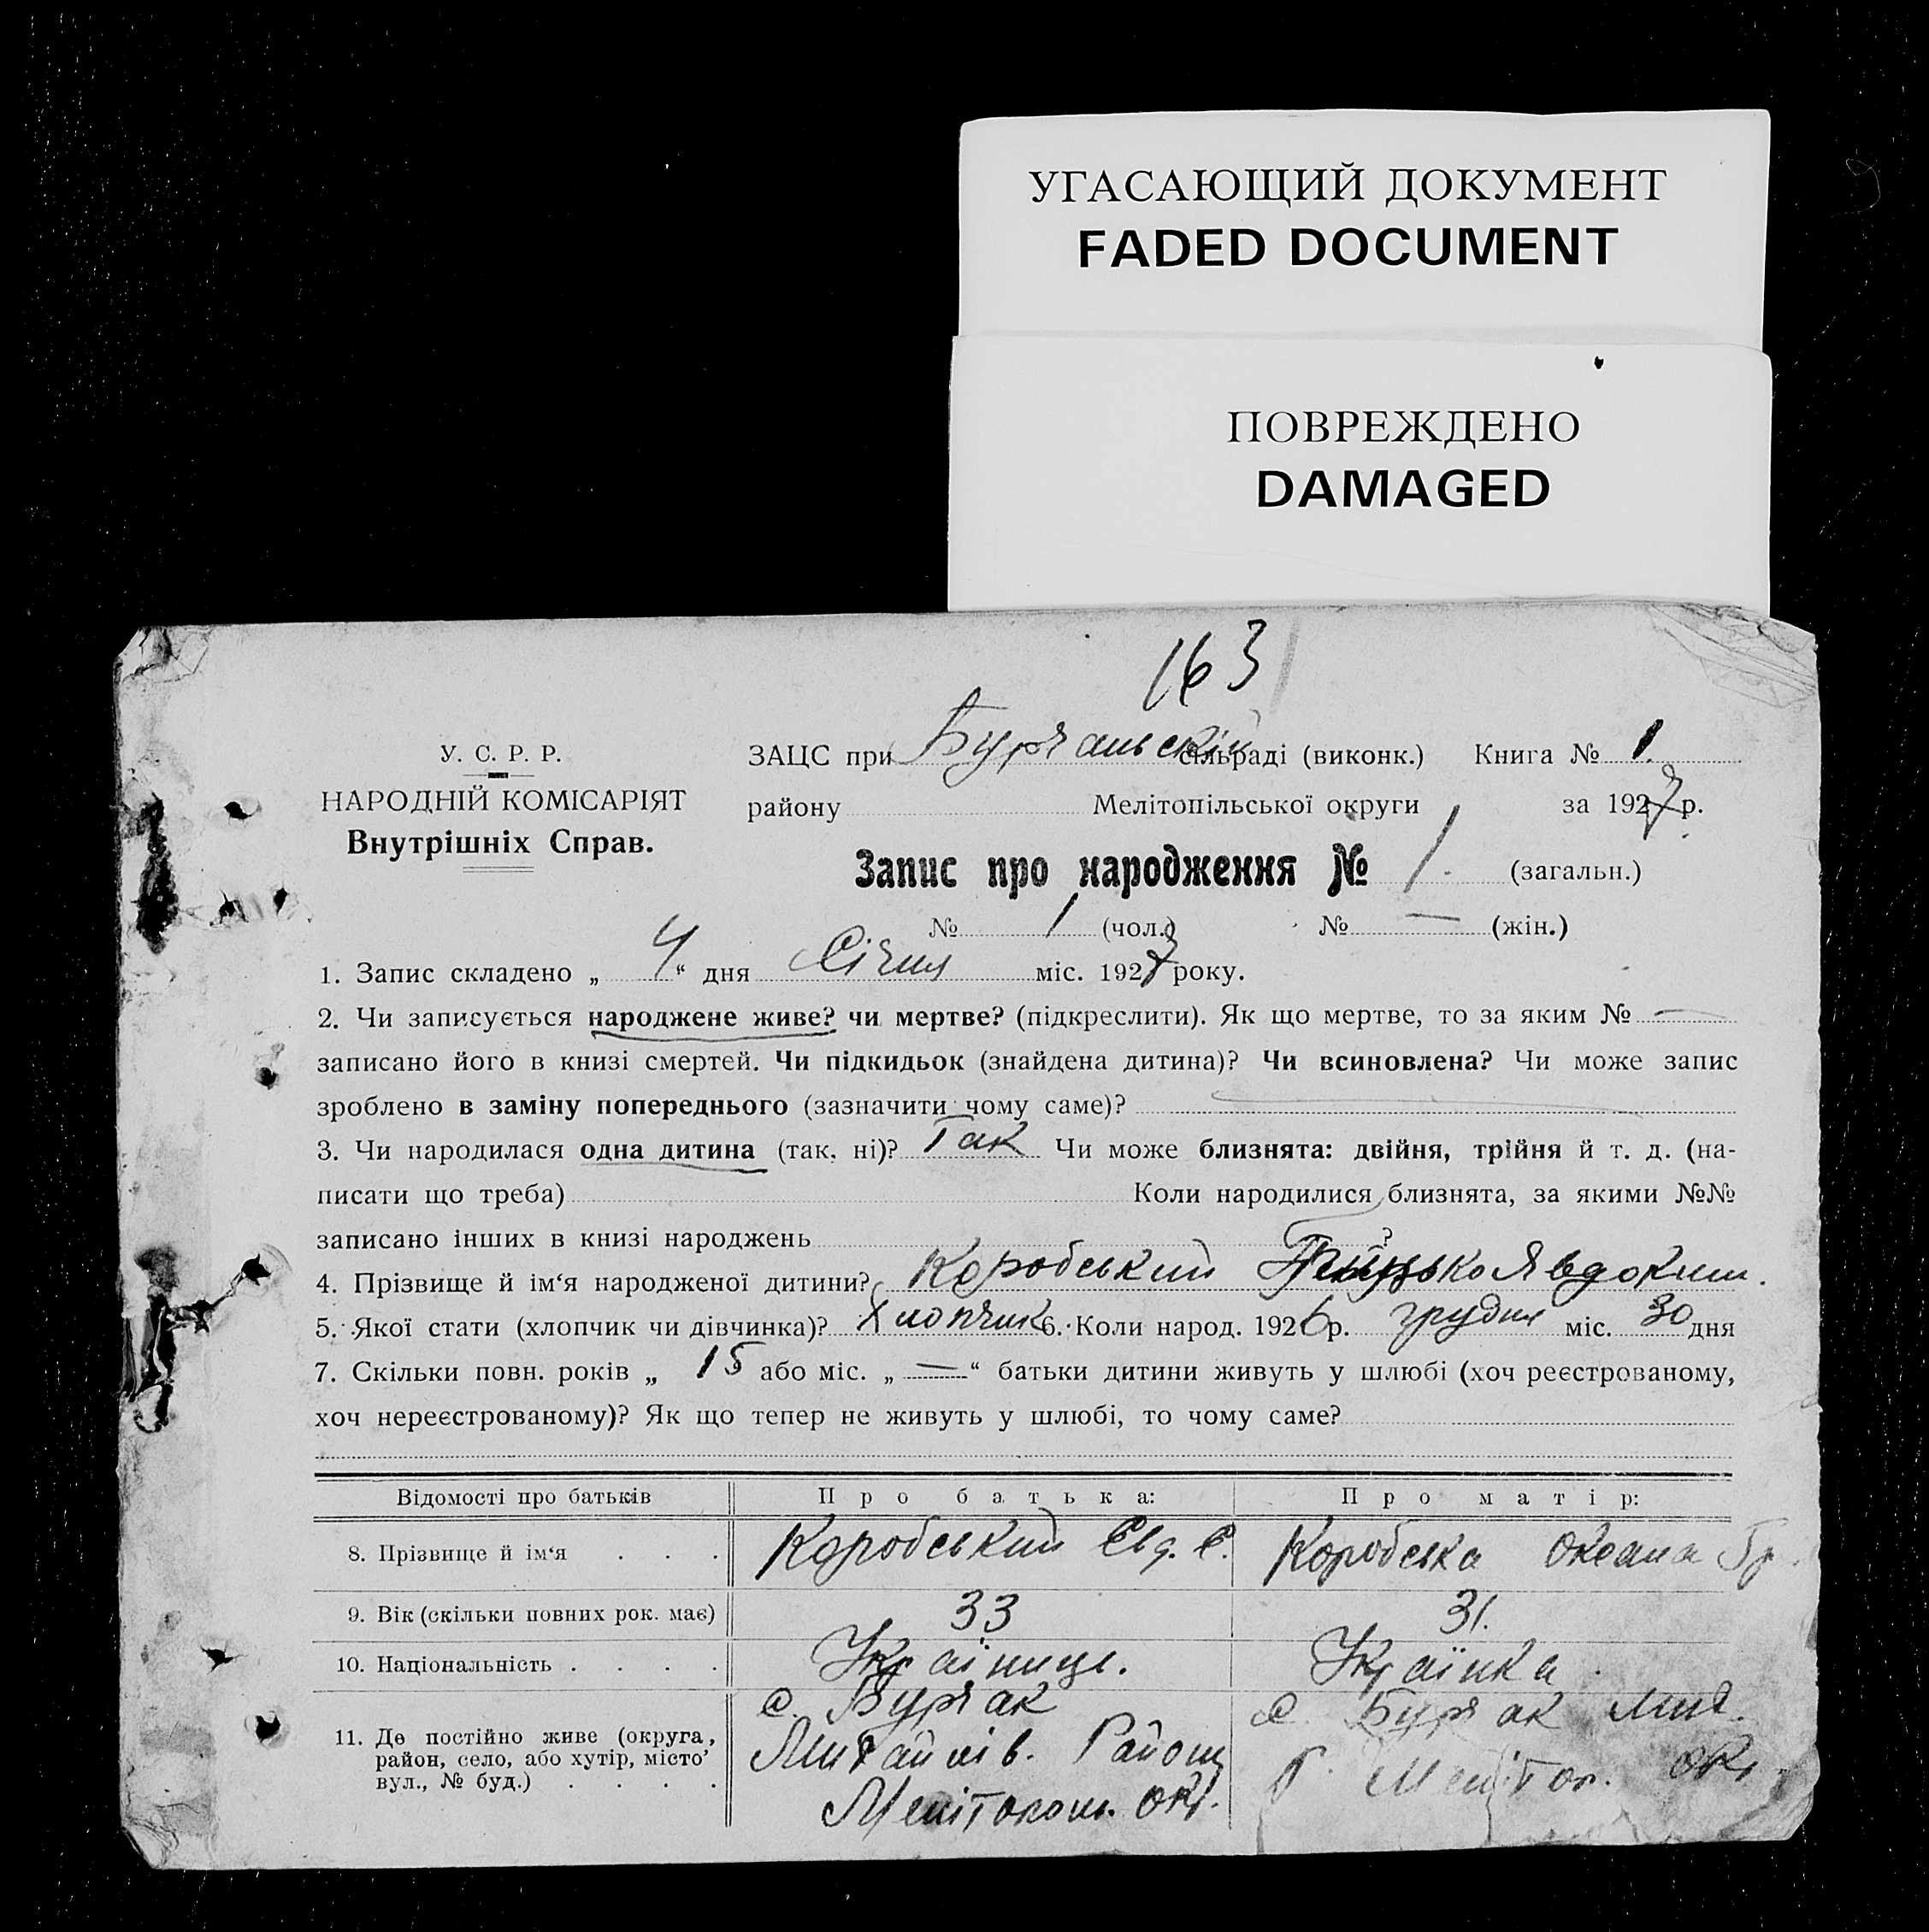 УГАСАЮЩИЙ ДОКУМЕНТ
FADED DOCUMENT
ПОВРЕЖДЕНО
DAMAGED
163
У. С. Р. Р.
НАРОДНІЙ КОМІСАРІЯТ
Внутрішніх Справ.
ЗАЦС при Бурчанській сільраді (виконк.) Книга № 1.
району Мелітопільської округи за 1927 р.
Запис про народження № 1. (загальн.)
№ 1 (чол.) № — (жін.)
1. Запис складено „ 4 “ дня Січня міс. 1927 року.
2. Чи записується народжене живе? чи мертве? (підкреслити). Як що мертве, то за яким № —
записано його в книзі смертей. Чи підкидьок (знайдена дитина)? Чи всиновлена? Чи може запис
зроблено в заміну попереднього (зазначити чому саме)?
3. Чи народилася одна дитина (так, ні)? Так Чи може близнята: двійня, трійня й т. д. (на-
писати що треба) Коли народилися близнята, за якими №№
записано інших в книзі народжень ?
4. Прізвище й ім‘я народженої дитини? Коробський Явдоким.
5. Якої стати (хлопчик чи дівчинка)? Хлопчик 6. Коли народ. 1926 р. грудня міс. 30 дня
7. Скільки повн. років „ 15 або міс. „ — “ батьки дитини живуть у шлюбі (хоч реєстрованому,
хоч нереєстрованому)? Як що тепер не живуть у шлюбі, то чому саме?
Відомості про батьків Про батька: Про матір:
8. Прізвище й ім‘я . . . Коробський Євд. Є. Коробська Оксана Гр.
9. Вік (скільки повних рок. має) 33 31.
10. Національність . . . . Українць. Українка.
11. Де постійно живе (округа,
район, село, або хутір, місто,
вул., № буд.) . . . .
с. Бурчак
Михайлів. Району
Мелітопол. окр.
с. Бурчак Мих.
р. Мелітоп. окр.